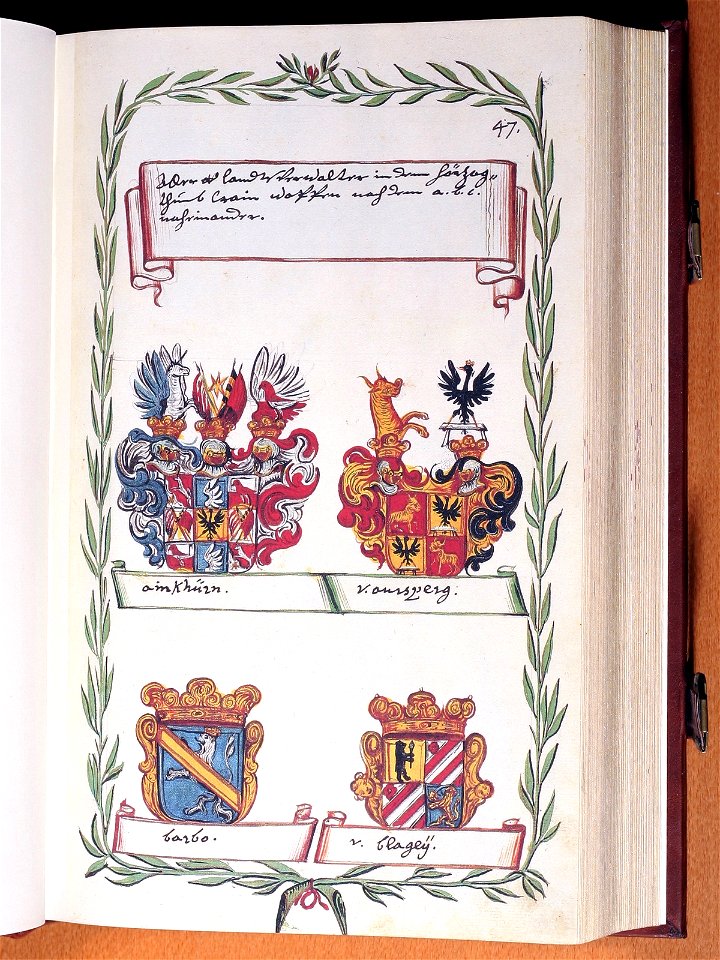 47.
Aller landtsVerwalter in dem Hörzog=
thumb Crain Waffen nach dem a. b. c.
nacheinander.
ainkhürn.
v. aursperg.
barbo.
v. blageÿ.